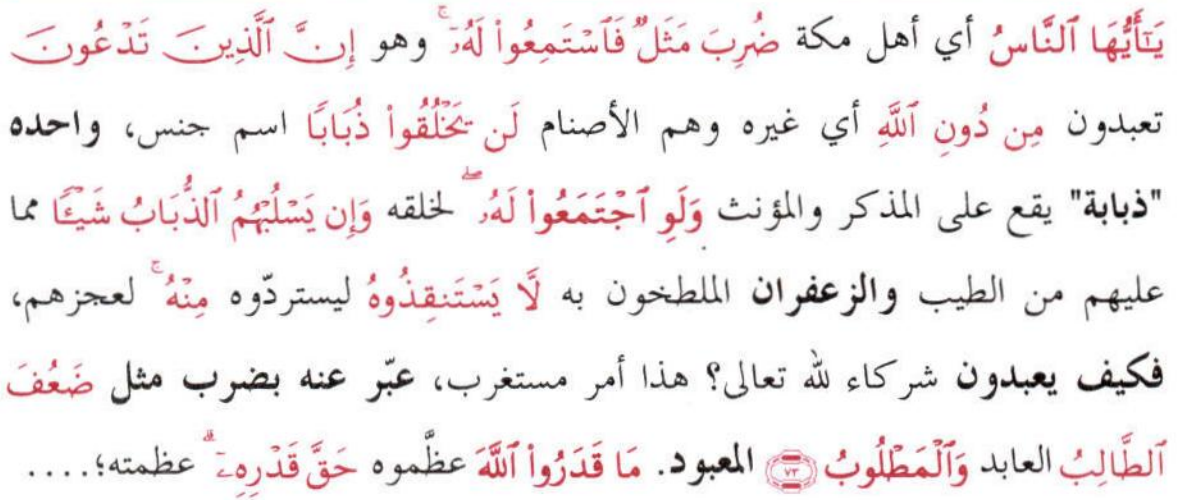 يَـٰٓأَيُّهَا ٱلنَّاسُ أي أهل مكة ضُرِبَ مَثَلٌ فَٱسْتَمِعُوا۟ لَهُۥٓ ۚ وهو إِنَّ ٱلَّذِينَ تَدْعُونَ
تعبدون مِن دُونِ ٱللَّهِ أي غيره وهم الأصنام لَن يَخْلُقُوا۟ ذُبَابًا اسم جنس، واحده
"ذبابة" يقع على المذكر والمؤنث وَلَوِ ٱجْتَمَعُوا۟ لَهُۥ ۖ لخلقه وَإِن يَسْلُبْهُمُ ٱلذُّبَابُ شَيْـًٔا مما
عليهم من الطيب والزعفران الملطخون به لَّا يَسْتَنقِذُوهُ ليستردّوه مِنْهُ ۚ لعجزهم،
فكيف يعبدون شركاء لله تعالى؟ هذا أمر مستغرب، عبّر عنه بضرب مثل ضَعُفَ
ٱلطَّالِبُ العابد وَٱلْمَطْلُوبُ ۝٧٣ المعبود. مَا قَدَرُوا۟ ٱللَّهَ عظَّموه حَقَّ قَدْرِهِۦٓ ۗ عظمته؛....